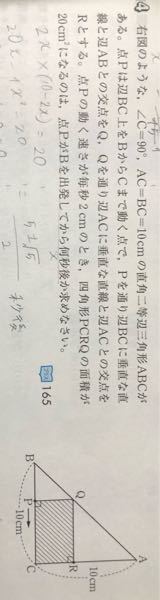 右図のような,∠C=90°,AC=BC=10cmの直角二等辺三角形ABCが
ある。点Pは辺BC上をBからCまで動く点で,Pを通り辺BCに垂直な直
線と辺ABとの交点をQ,Qを通り辺ACに垂直な直線と辺ACとの交点を
Rとする。点Pの動く速さが毎秒2cmのとき,四角形PCRQの面積が
20cm²になるのは,点PがBを出発してから何秒後か求めなさい。
165
2x×(10-2x)=20
5±√5
2
秒後
A
10cm
Q
R
B
P
C
10cm